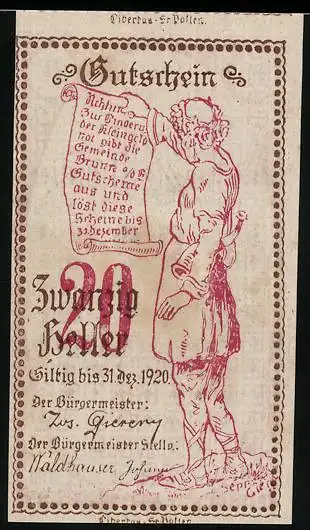 Libertas-St Pölten.
Gutschein
Achtung
Zur Linderung
der Kleingeld
not gibt die
Gemeinde
Brunn a/S
Gutscheine
aus und
löst diese
Scheine bis
31 dezember
20
Zwanzig
Heller
Giltig bis 31. Dez. 1920.
Der Bürgermeister:
Jos.
Der Bürgermeister Stellv.:
Waldhauser Johann
Libertas-St Pölten